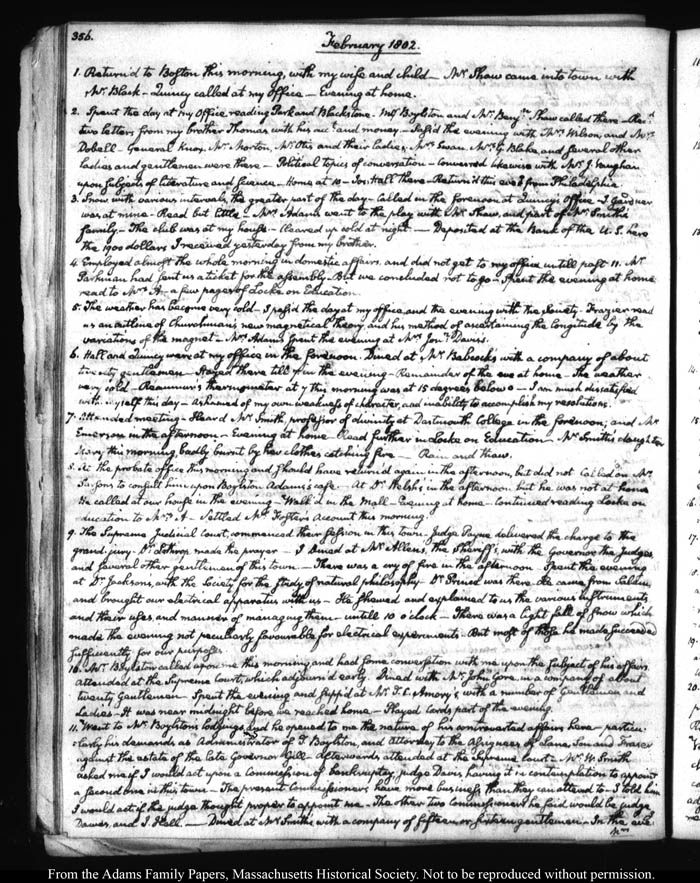 356.
February 1802.
1. Return'd to Boston this morning, with my wife and child — Mr Shaw came into town with
Mr Black — Quincy called at my Office — Evening at home.
2. Spent the day at my Office, reading Park and Blackstone. Mr Boylston and Mr Benjn. Shaw called there — Recd.
two letters from my brother Thomas with his acct. and money — Pass'd the evening with Thos. Wilson, and Mrs.
Dobell — General Knox, Mr. Morton, Mr Otis and their ladies, Mrs. Swan, Mrs. G Blake, and several other
ladies and gentlemen were there — Political topics of conversation — Conversed likewise with Mr J. Vaughan
upon subjects of literature and science. Home at 10 — Jos: Hall there — Return'd this eveg. from Philadelphia.
3. Snow with various intervals, the greater part of the day — Called in the forenoon at Quincy's Office — J Gardner
was at mine — Read but little — Mrs. Adams went to the play with Mr Shaw, and part of Mr Smith's
family — The club was at my house — Cleared up cold at night — Deposited at the Bank of the U.S. here
the 1900 dollars I received yesterday from my brother.
4. Employed almost the whole morning in domestic affairs, and did not get to my office untill past 11. Mr
Parkman had sent us a ticket for the assembly, But we concluded not to go — Spent the evening at home
read to Mrs A — a few pages of Locke on Education.
5. The weather has become very cold — I pass'd the day at my office, and the evening with the Society. Frazier read
us an outline of Churchman's new magnetical theory, and his method of ascertaining the longitude by the
variations of the magnet — Mrs Adams spent the evening at Mrs Jona. Davis.
6. Hall and Quincy were at my office in the forenoon. Dined at Mr Babcock's with a company of about
twenty gentlemen — Stayed there till 7 in the evening — Remainder of the eve at home — The weather
very cold — Reaumur's thermometer at 7 this morning was at 15 degrees below 0 — I am much dissatisfied
with myself this day — ashamed of my own weakness of character, and inability to accomplish my resolutions.
7. Attended meeting — Heard Mr Smith, professor of divinity at Dartmouth College in the forenoon; and Mr
Emerson in the afternoon — Evening at home — Read further in Locke on Education — Mr Smith's daughter
Mary, this morning, badly burnt by her clothes catching fire — Rain and thaw.
8. At the probate office this morning and should have return'd again in the afternoon, but did not. Called on Mr
Parsons to consult him upon Boylston Adams's case. At Dr Welsh's in the afternoon but he was not at home
He called at our house in the evening — Walk'd in the Mall — Evening at home — Continued reading Locke on
education to Mrs A — Settled Mrs Foster's Account this morning.
9. The Supreme Judicial Court, commenced their session in this town. Judge Payne delivered the charge to the
grand-jury. Dr Lathrop made the prayer — I dined at Mr Allen's, the Sheriff's, with the Governor, the Judges
and several other gentlemen of this town — There was a cry of fire in the afternoon — Spent the evening
at Dr Jackson's, with the Society for the study of natural philosophy. Dr Prince was there. He came from Salem,
and brought our electrical apparatus with us — He shewed and explained to us the various instruments
and their uses, and manner of managing them — untill 10 o'clock — There was a light fall of snow which
made the evening not peculiarly favourable for electrical experiments — But most of those he made succeeded
sufficiently for our purposes.
10. Mr. Boylston called upon me this morning and had some conversation with me upon the subject of his affairs
Attended at the Supreme Court, which adjourn'd early. Dined with Mr John Gore, in a company of about
twenty gentlemen — Spent the evening and supp'd at Mr T. C. Amory's, with a number of Gentlemen and
Ladies — It was near midnight before we reached home — Played Cards part of the evening.
11. Went to Mr Boylston's lodgings, and he opened to me the nature of his controverted affairs here — particu-
larly his demands as Administrator of T. Boylston, and Attorney to the Assignees of Lane, Son and Fraser
against the estate of the late Governor Gill — Afterwards attended at the Supreme Court — Mr W. Smith
asked me if I would act upon a Commission of bankruptcy, judge Davis having it in contemplation to appoint
a second one in this town — The present Commissioners have more business than they can attend to — I told him
I would act if the judge thought proper to appoint me. — The other two Commissioners he said would be judge
Dawes, and J. Hall. — Dined at Mr Smith's with a company of fifteen or sixteen gentlemen — In the eve
From the Adams Family Papers, Massachusetts Historical Society. Not to be reproduced without permission.